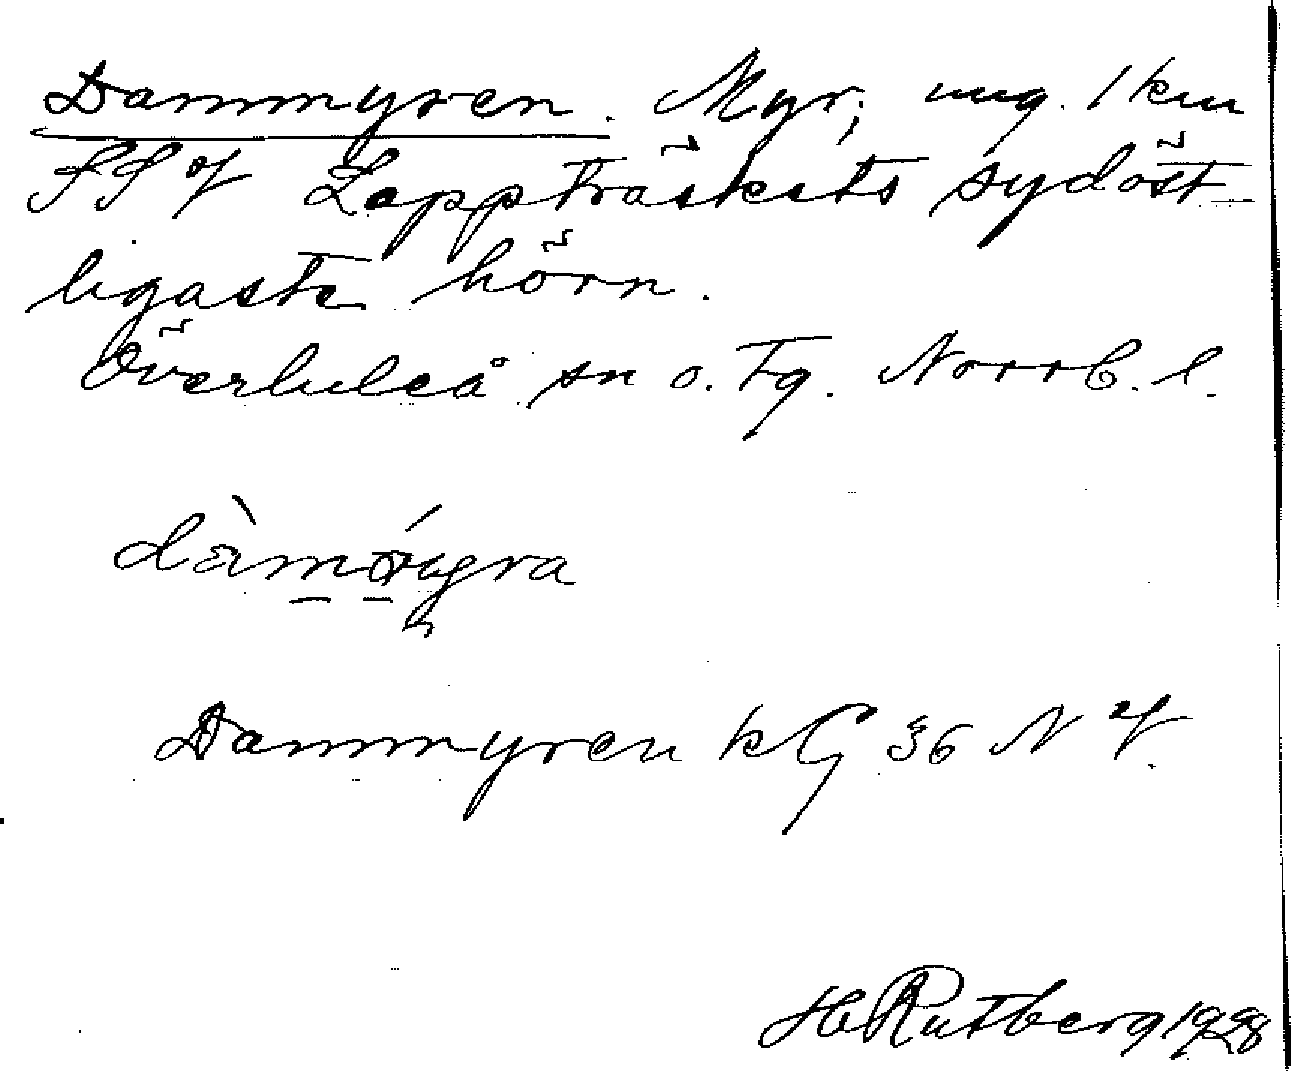 Dammyren. Myr, ung. 1 km
SS of Lappträskets sydöst-
ligaste hörn.
Överluleå sn o. tg. Norrb. l.
Dammyren kG 36 N
H Rutberg 1928